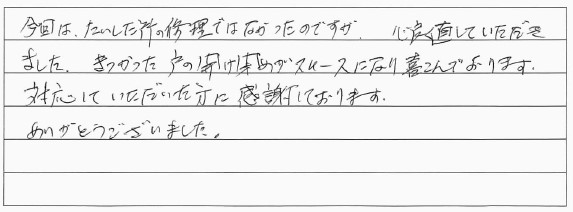 今回は、たいした所の修理ではなかったのですが、心良く直していただき
ました。きつかった戸の開け閉めがスムースになり喜こんでおります。
対応していただいた方に感謝しております。
ありがとうございました。